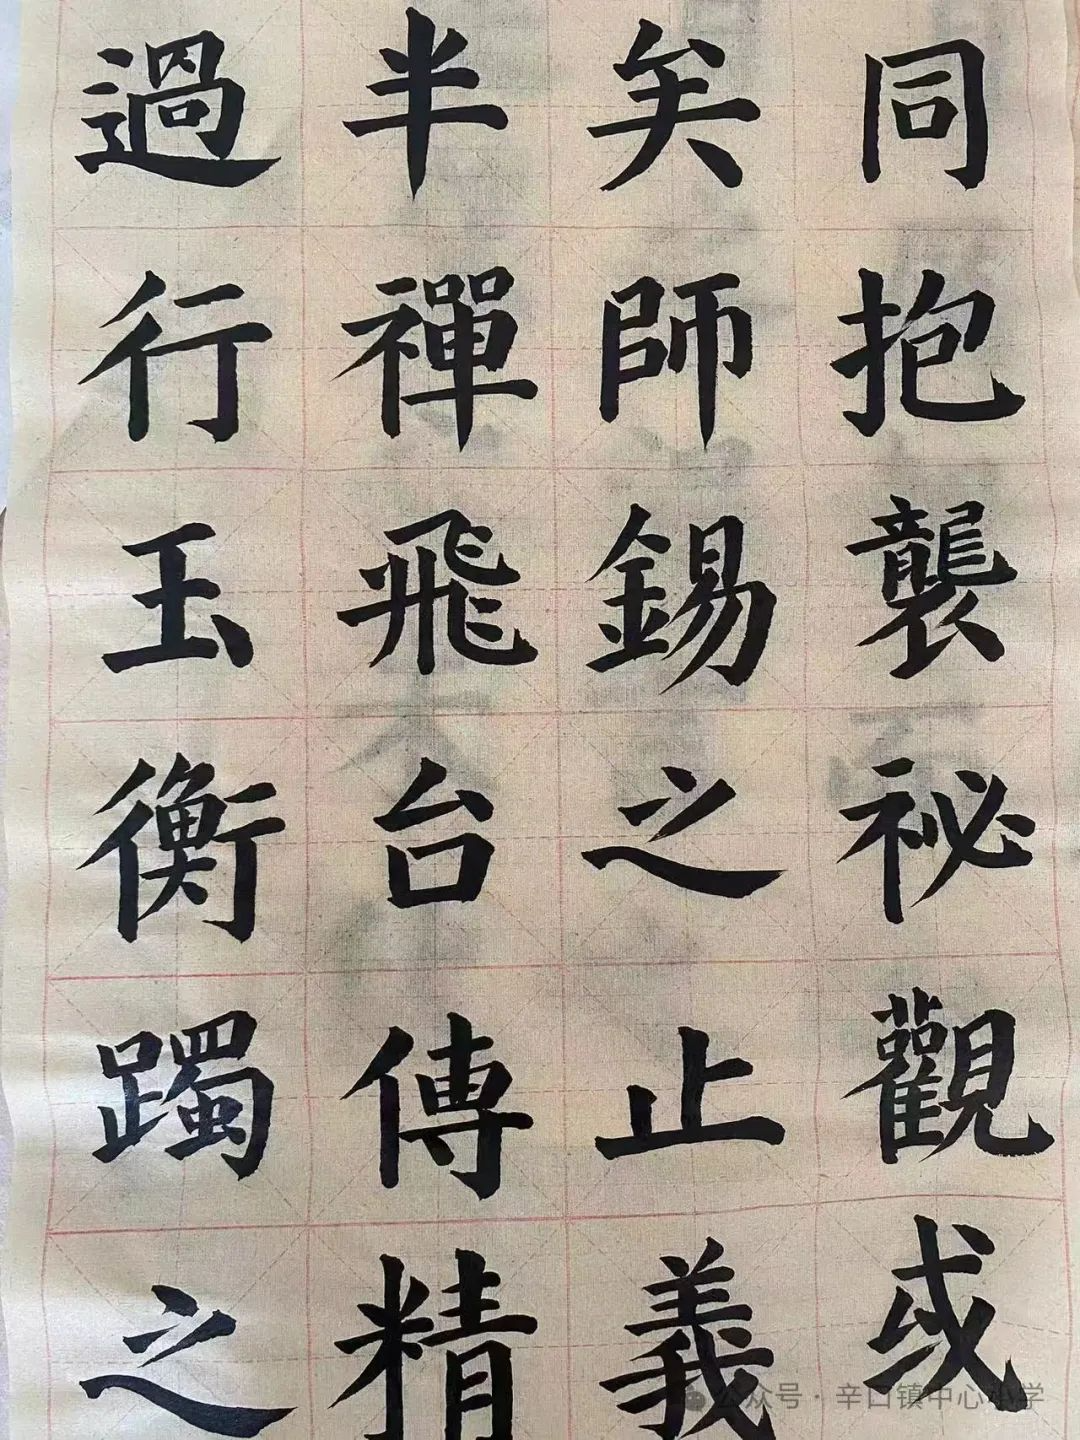 同抱襲祕觀或
矣師錫之止義
半禪飛台傳精
過行玉衡躅之
公众号·辛口镇中心小学